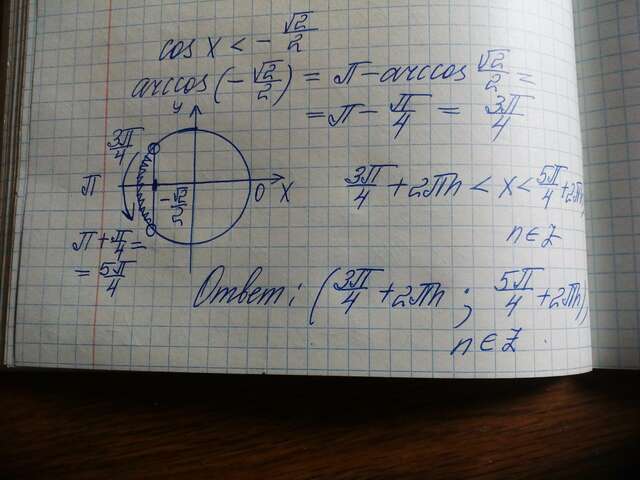 cos x < - √2/2
arccos(-√2/2) = π - arccos √2/2 =
= π - π/4 = 3π/4
y
3π/4
π
-√2/2
0
x
π + π/4 =
= 5π/4
3π/4 + 2πn < x < 5π/4 + 2πn,
n ∈ Z
Ответ: (3π/4 + 2πn ; 5π/4 + 2πn),
n ∈ Z.